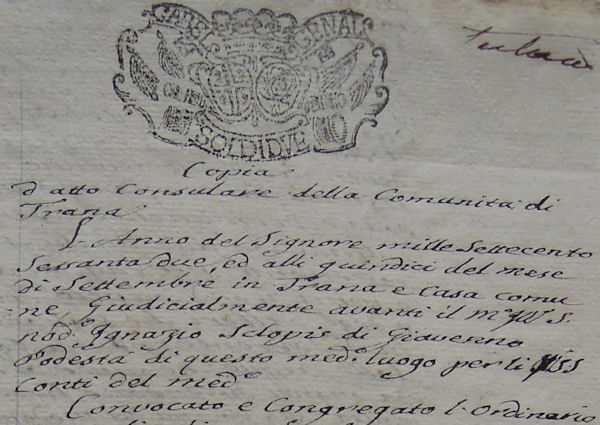 GABEL GENAL
SOLDI DVE
Copia
d'atto Consulare della Comunità di
Trana
L'Anno del Signore mille Settecento
Sessanta due, ed alli quindici del mese
di Settembre in Trana e Casa comu
=ne, Giudicialmente avanti il m.to Ill.e S.
nod.o Ignazio Sclopis di Giaveno
Podestà di questo med.o luogo per li
Conti del med.o
Convocato e Congregato l'Ordinario